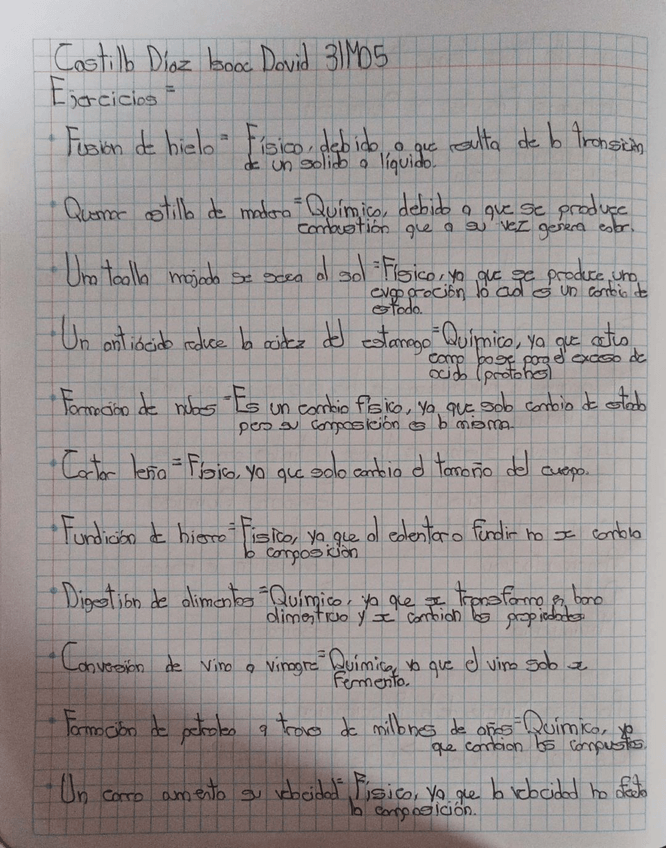 Castillo Díaz Isaac David 3IM05
Ejercicios =
Fusión de hielo = Físico, debido a que resulta de la transición
de un solido a líquido.
Quemar astilla de madera = Químico, debido a que se produce
combustión que a su vez genera calor.
Una toalla mojada se seca al sol = Físico, ya que se produce una
evaporación lo cual es un cambio de
estado.
Un antiácido reduce la acidez del estomago = Químico, ya que actua
como base para el exceso de
ácido (protones)
Formación de nubes = Es un cambio físico, ya que solo cambia de estado
pero su composición es la misma.
Cortar leña = Físico, ya que solo cambia el tamaño del cuerpo.
Fundición de hierro = Físico, ya que al calentar o fundir no se cambia
la composición
Digestión de alimentos = Químico, ya que se transforma en bolo
alimenticio y se cambian las propiedades
Conversión de vino a vinagre = Química, ya que el vino solo se
fermenta.
Formación de petroleo a traves de millones de años = Químico, ya
que cambian los compuestos.
Un carro amenta su velocidad = Físico, ya que la velocidad no afecta
la composición.